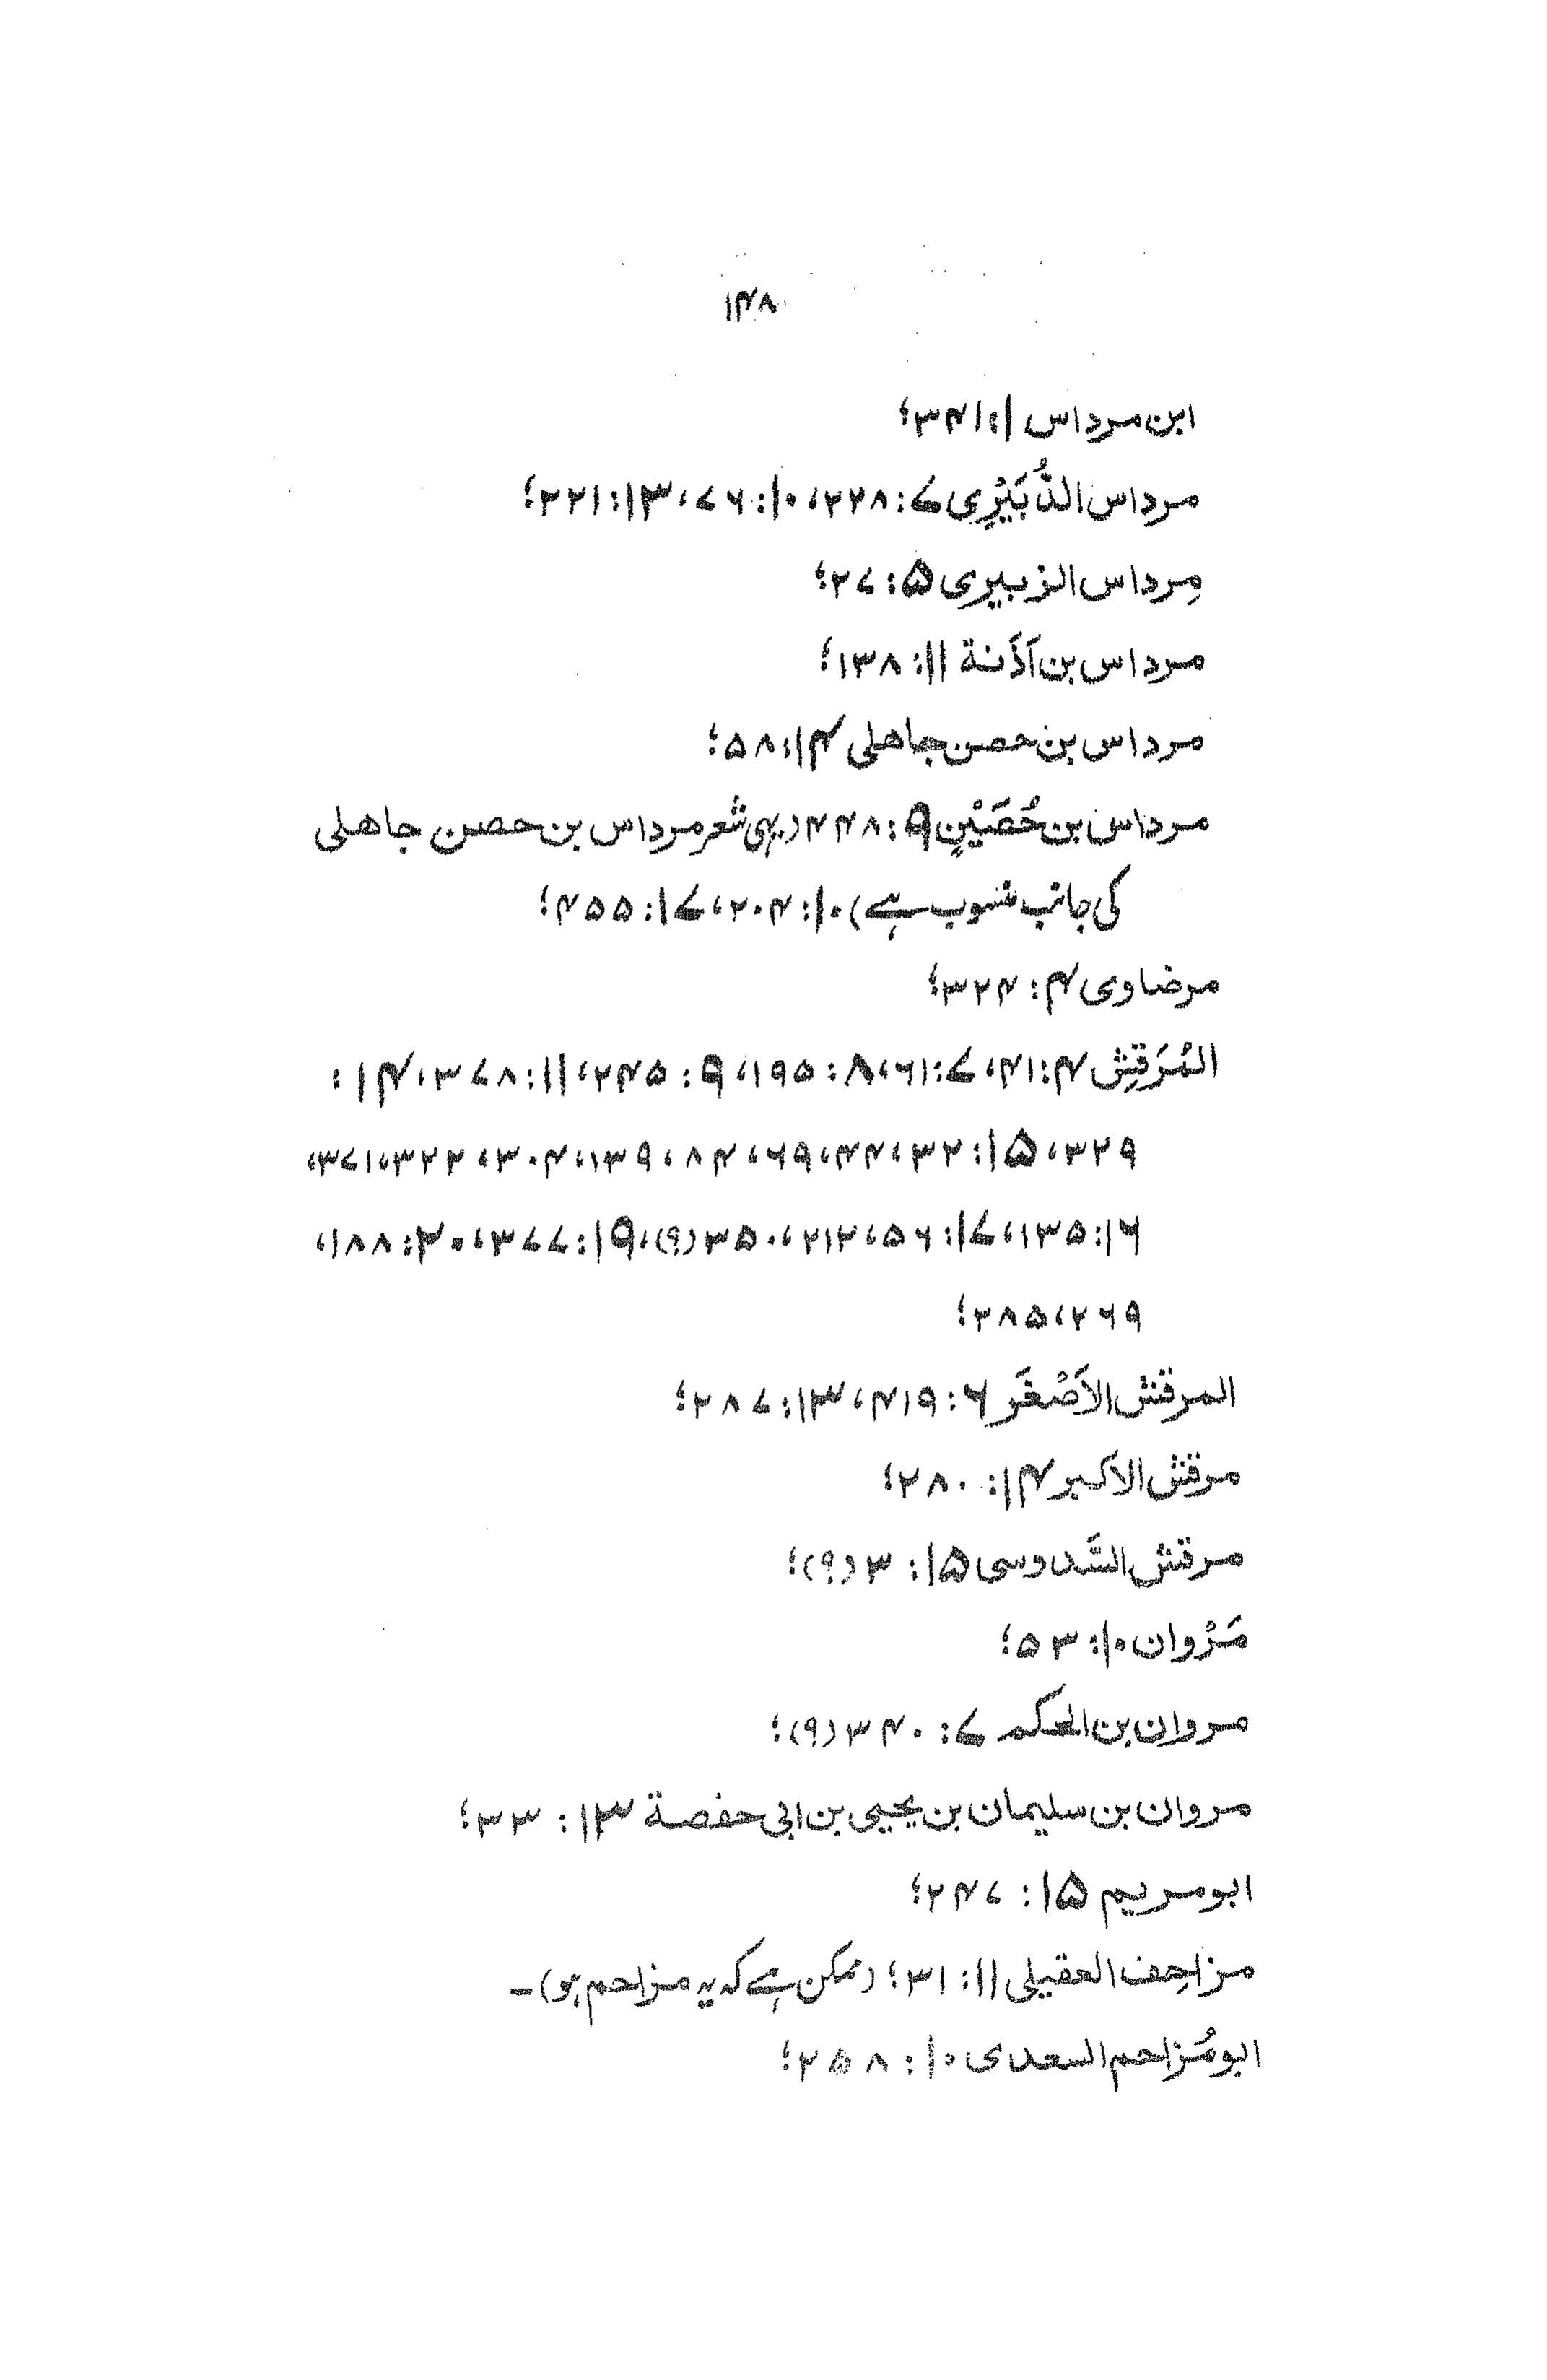 ۱۴۸
ابن مرداس ۱: ۳۴۱؛
مرداس الدُّبَیْرِی ۷: ۲۲۸، ۱۰: ۷۶، ۱۳: ۲۲۱؛
مِرداس الزبیری ۵: ۲۷؛
مرداس بن آذَنة ۱۱: ۱۳۸؛
مرداس بن حصن جاهلی ۱۴: ۵۸؛
مرداس بن حُصَیْنٍ ۹: ۴۴۸ (یہی شعر مرداس بن حصن جاهلی
کی جانب منسوب ہے) ۱۰: ۲۰۴، ۱۷: ۴۵۵؛
مرضاوی ۴: ۳۲۴؛
المُرَقِش ۴: ۴۱، ۷: ۶۱، ۸: ۱۹۵، ۹: ۲۴۵، ۱۱: ۳۷۸، ۱۴:
۳۲۹، ۱۵: ۳۲، ۴۴، ۶۹، ۸۴، ۱۳۹، ۳۰۴، ۳۲۲، ۳۷۱،
۱۶: ۱۳۵، ۱۷: ۵۶، ۲۱۲، ۳۵۰ (؟)، ۱۹: ۳۷۷، ۲۰: ۱۸۸،
۲۶۹، ۲۸۵؛
المرقش الاَصْغَر ۶: ۴۱۹، ۱۳: ۲۸۷؛
مرقش الاکبر ۱۴: ۲۸۰؛
مرقش السَّدوسی ۱۵: ۳ (؟)؛
مَرْوان ۱۰: ۵۳؛
مروان بن الحکم ۷: ۳۴۰ (؟)؛
مروان بن سلیمان بن یحییی بن ابی حفصة ۱۳: ۳۳؛
ابو مریم ۱۵: ۲۴۷؛
مزاحِف العقیلی ۱۱: ۳۱؛ (ممکن ہے کہ یہ مزاحم ہو)۔
ابو مُزاحم السعدی ۱۰: ۲۵۸؛